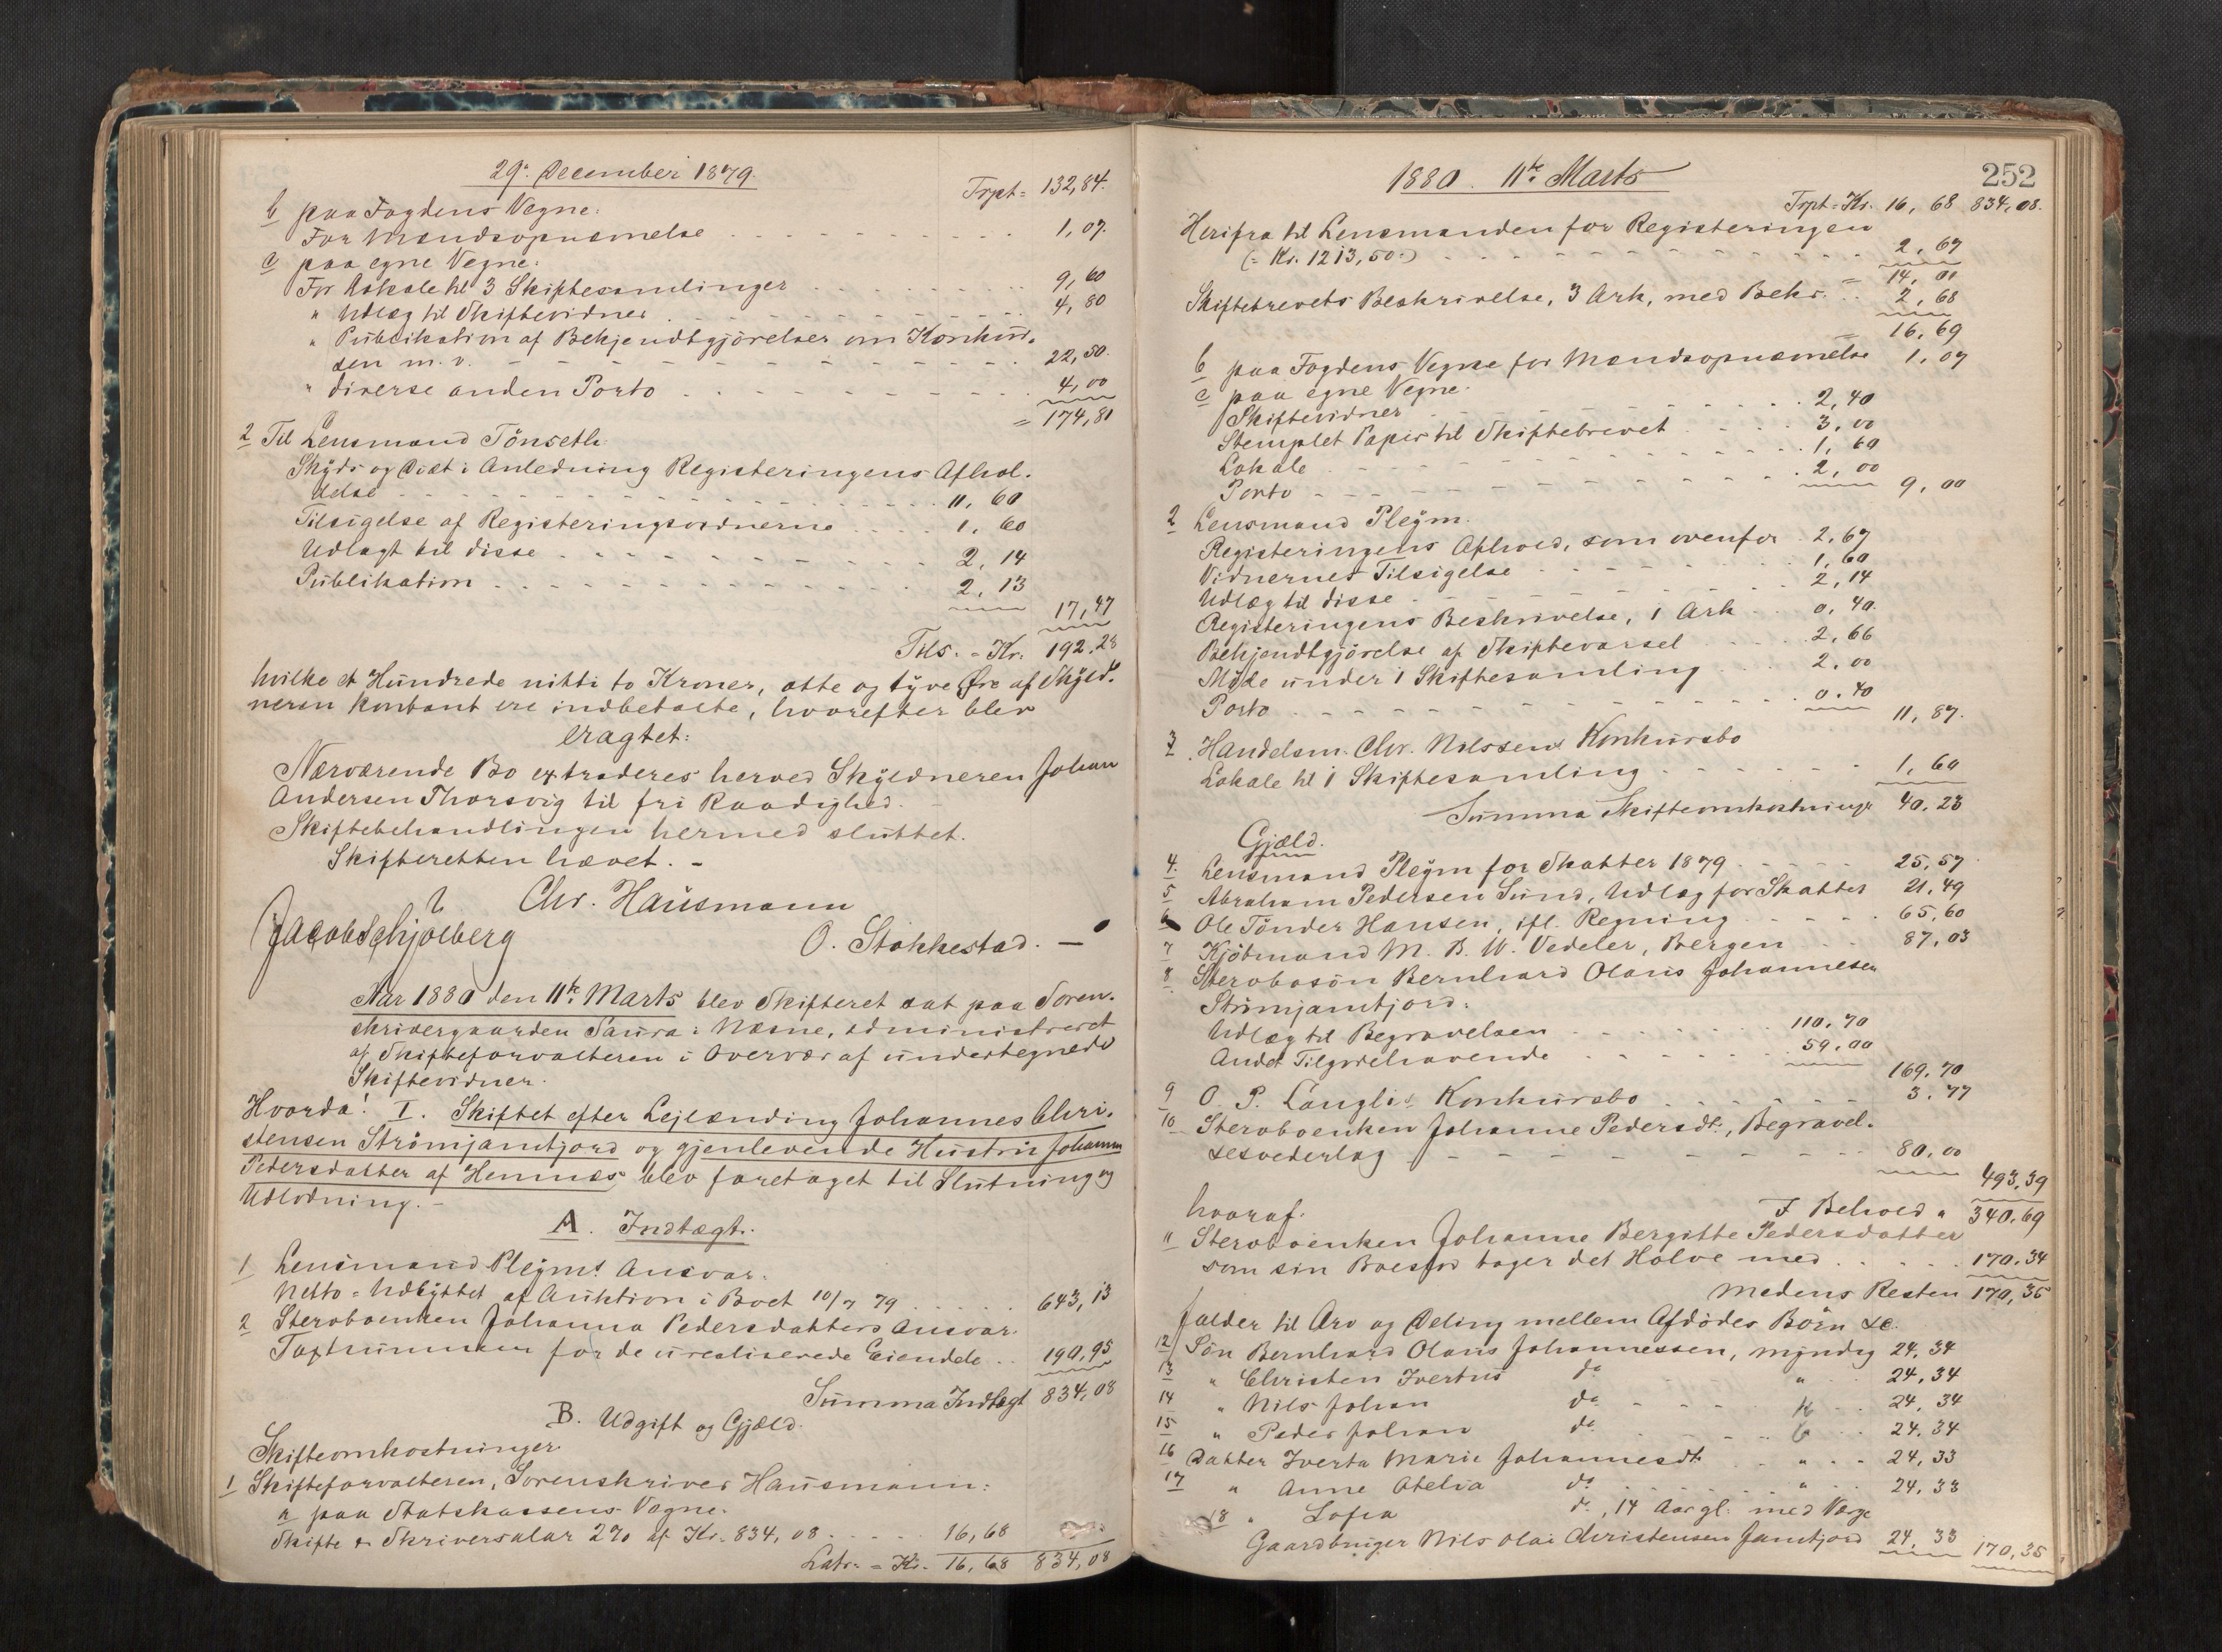 29de December 1879.
Trpt = 132,84.
b paa Fogdens Vegne:
For Mændsopnævnelse 1,07.
c paa egne Vegne:
For Lokale til 3 Skiftesamlinger 9,60
" Udlæg til Skiftevidner 4,80
" Publikation af Bekjendtgjörelser om Konkur-
sen m. v. 22,50.
" diverse anden Porto 4,00
= 174,81
2 Til Lensmand Tönseth:
Skyds og Diæt i Anledning Registeringens Afhol-
delse 11,60
Tilsigelse af Registeringsvidnerne 1,60
Udlagt til disse 2,14
Publikation 2,13
17,47
Tils. = Kr. 192,28
hvilke et Hundrede nitti to Kroner, otte og tyve Øre af Skyld-
neren kontant ere indbetalte, hvorefter blev
eragtet:
Nærværende Bo extraderes herved Skyldneren Johan
Andersen Thorsvig til fri Raadighed. -
Skiftebehandlingen hermed sluttet.
Skifteretten hævet. -
Chr. Hausmann
Jacob Schjelberg
O. Stokkestad. -
Aar 1880 den 11te Marts blev Skifteret sat paa Soren-
skrivergaarden Saura i Næsne, administreret
af Skifteforvalteren i Overvær af undertegnede
Skiftevidner.
Hvorda! I. Skiftet efter Lejlænding Johannes Chri-
stensen Strömjamtfjord og gjenlevende Hustru Johanna
Pedersdatter af Hemnæs blev foretaget til Slutning og
Udlodning. -
A. Indtægt:
1 Lensmand Pleyms Ansvar:
Netto-Udbyttet af Auktion i Boet 10/7 79 643,13
2 Stervboenken Johanna Pedersdatters Ansvar.
Taxtsummen for de urealiserede Eiendele 190,95
Summa Indtægt 834,08
B. Udgift og Gjæld.
Skifteomkostninger
1 Skifteforvalteren, Sorenskriver Hausmann:
a paa Statskassens Vegne:
Skifte & Skriversalær 2% af Kr. 834,08 16,68
Latr. = Kr. 16,68 834,08
1880. 11te Marts
252
Trpt = Kr. 16,68 834,08.
Herifra til Lensmanden for Registeringen
(= Kr. 1213,50=) 2,67
= 14,01
Skiftebrevets Beskrivelse, 3 Ark, med Bekr. 2,68
= 16,69
b paa Fogdens Vegne for Mændsopnævnelse 1,07
c paa egne Vegne:
Skiftevidner 2,40
Stemplet Papir til Skiftebrevet 3,00
Lokale 1,60
Porto 2,00 9,00
2 Lensmand Pleym.
Registeringens Afhold, som ovenfor 2,67
Vidnernes Tilsigelse 1,60
Udlæg til disse 2,14
Registeringens Beskrivelse, 1 Ark 0,40.
Bekjendtgjörelse af Skiftevarsel 2,66
Möde under 1 Skiftesamling 2,00
Porto 0,40
11,87.
3 Handelsm. Chr. Nilssens Konkursbo
Lokale til 1 Skiftesamling 1,60
Summa Skifteomkostninger 40,23
Gjæld.
4. Lensmand Pleym for Skatter 1879 25,57
5 Abraham Pedersen Sund, Udlæg for Skatter 21,49
6 Ole Tönder Hansen, ifl. Regning 65,60
7 Kjöbmand M. B. W. Vedeler, Bergen 87,03
8 Stervbosön Bernhard Olaus Johannesen
Strömjamtfjord:
Udlæg til Begravelsen 110,70
Andet Tilgodehavende 59,00
169,70
9 O. P. Langlis Konkursbo 3,77
10 Stervboenken Johanne Pedersdt., Begravel-
sesvederlag 80,00
493,39
I Behold " 340,69
hvoraf:
11 Stervboenken Johanne Bergitte Pedersdatter
som sin Boeslod tager det Halve med 170,34
medens Resten 170,35
falder til Arv og Deling mellem Afdödes Börn &c.
12 Sön Bernhard Olaus Johannessen, myndig 24,34
13 " Christen Ivertus do " 24,34
14 " Nils Johan do " 24,34
15 " Peder Johan do " 24,34
16 Datter Iverta Marie Johannesdt. " 24,33
17 " Anne Otelia do " 24,33
18 " Lofia do, 14 Aar gl. med Værge
Gaardbruger Nils Olai Christensen Jamtfjord 24,33 170,35